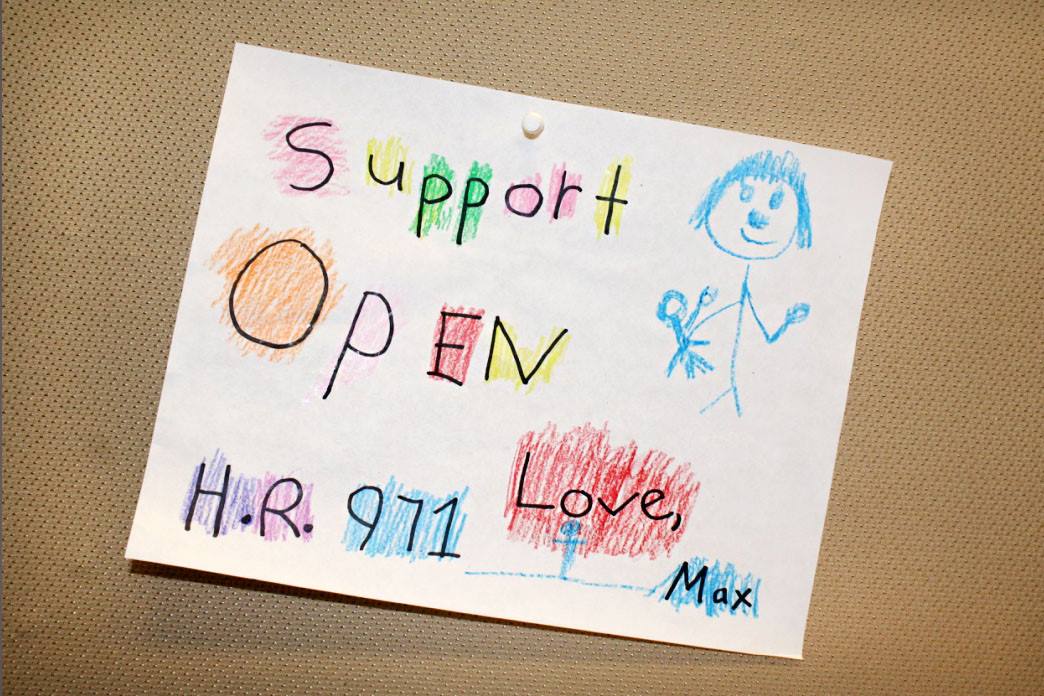 Support
OpEN
H.R. 971
Love,
Max